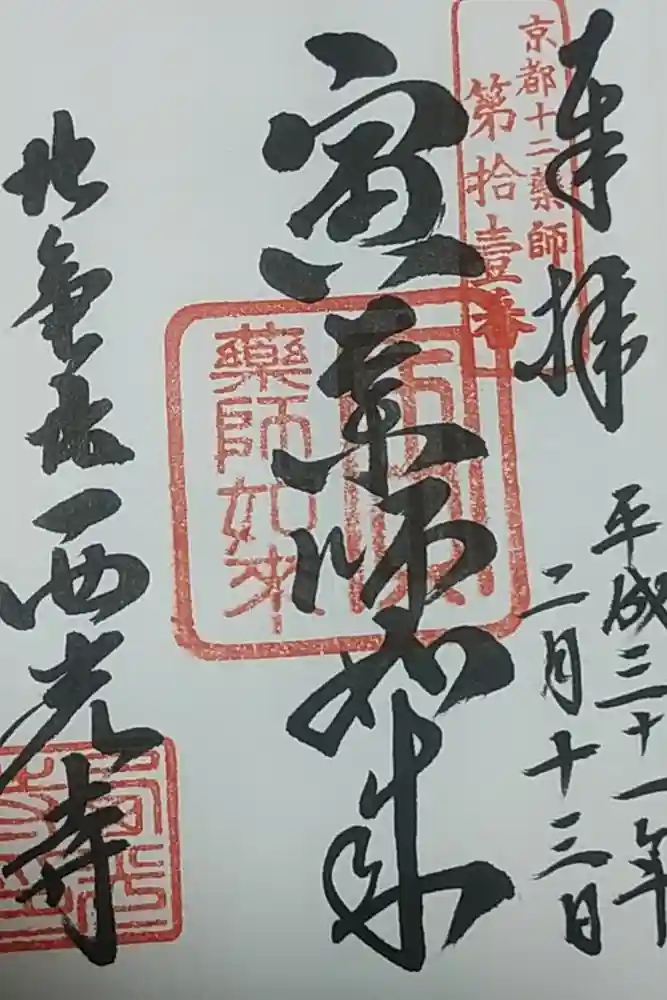 奉拝
京都十二薬師
第拾壹番
平成三十一年
二月十三日
寅薬師如来
寅薬師如来
西光寺